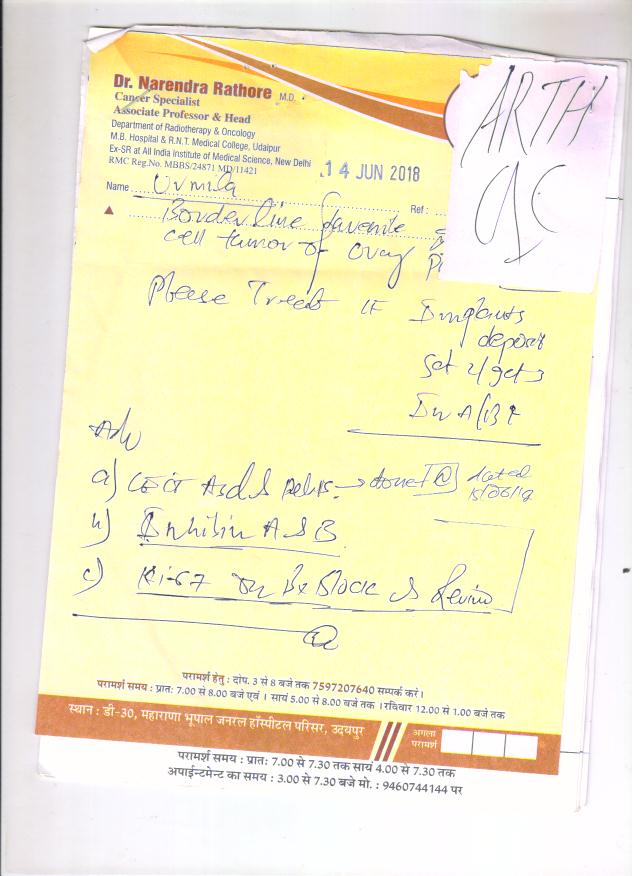 Dr. Narendra Rathore M.D.
Cancer Specialist
Associate Professor & Head
Department of Radiotherapy & Oncology
M.B. Hospital & R.N.T. Medical College, Udaipur
Ex-SR at All India Institute of Medical Science, New Delhi
RMC Reg.No. MBBS/24871 MD/11421
14 JUN 2018
ARTH
Name Urmila
Ref :
Borderline Juvenile
cell tumor of Ovary
Please Treat IF Implants
deposit
Adv
a) CECT Abd & Pelvis → done dated
b) Inhibin A & B
c) Ki-67 on Bx Block & Review
परामर्श हेतु : दोप. 3 से 8 बजे तक 7597207640 सम्पर्क करें।
परामर्श समय : प्रातः 7.00 से 8.00 बजे एवं । सायं 5.00 से 8.00 बजे तक । रविवार 12.00 से 1.00 बजे तक
स्थान : डी-30, महाराणा भूपाल जनरल हॉस्पीटल परिसर, उदयपुर
अगला
परामर्श
परामर्श समय : प्रातः 7.00 से 7.30 तक सायं 4.00 से 7.30 तक
अपाईन्टमेन्ट का समय : 3.00 से 7.30 बजे मो. : 9460744144 पर